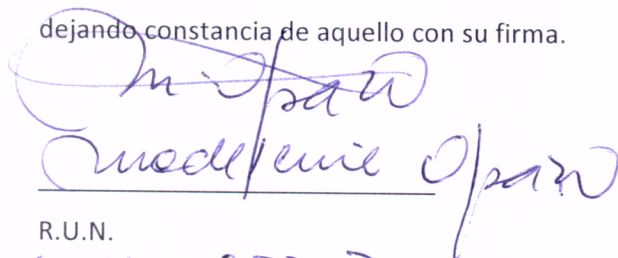 dejando constancia de aquello con su firma.
M. Opazo
Madeleine Opazo
R.U.N.